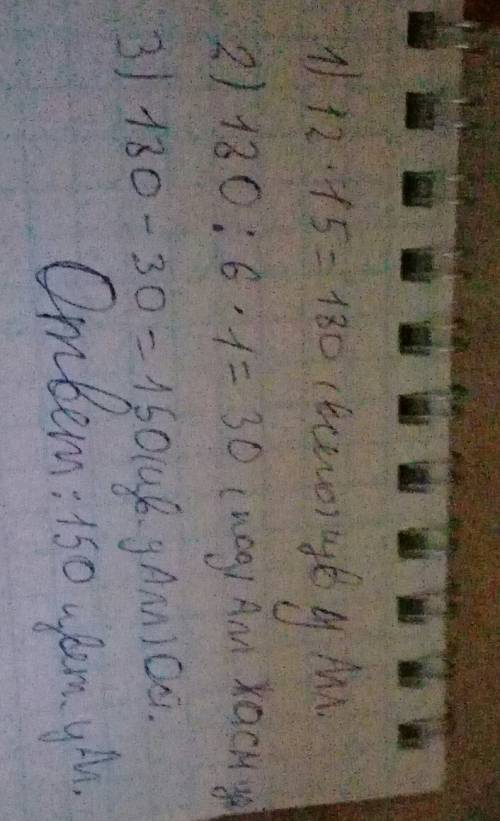 1) 12 · 15 = 180 (всего) цв у Ал.
2) 180 : 6 · 1 = 30 (под) Ал
3) 180 - 30 = 150 цв. у Ал) Ост.
Ответ: 150 цвет. у Ал.